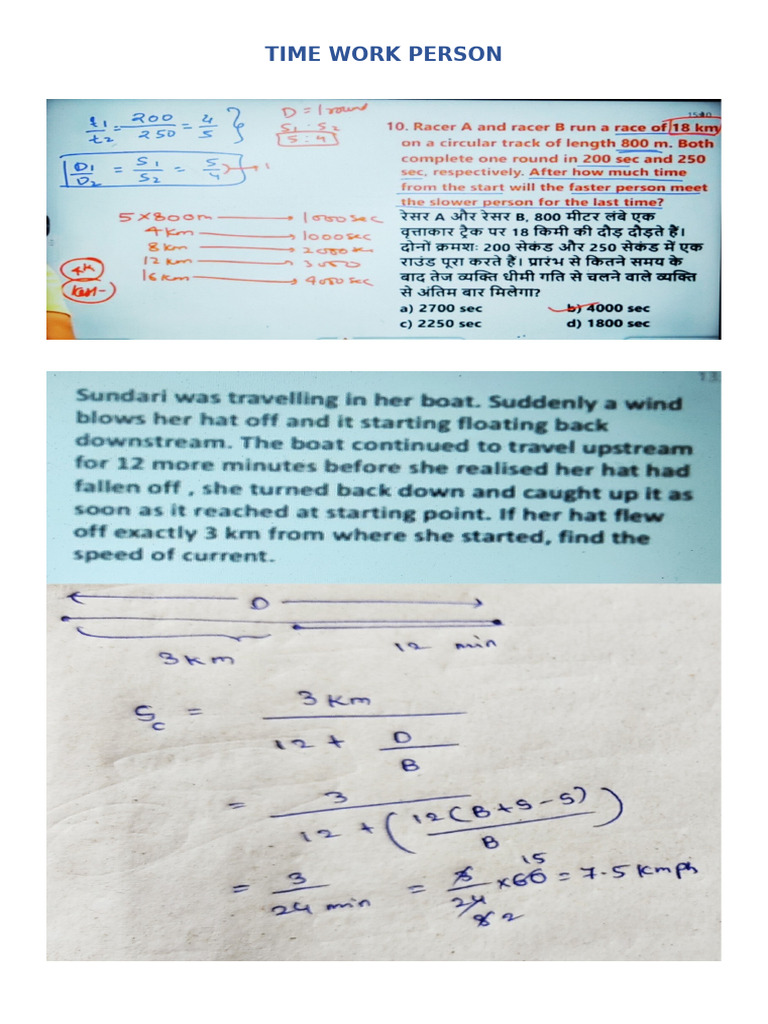 TIME WORK PERSON
t1/t2 = 200/250 = 4/5
D = 1 round
S1 : S2
5 : 4
D1/D2 = S1/S2 = 5/4
5 x 800m → 1000 sec
4 km → 1000 sec
8 km →
12 km →
16 km → 4000 sec
10. Racer A and racer B run a race of 18 km
on a circular track of length 800 m. Both
complete one round in 200 sec and 250
sec, respectively. After how much time
from the start will the faster person meet
the slower person for the last time?
रेसर A और रेसर B, 800 मीटर लंबे एक
वृत्ताकार ट्रैक पर 18 किमी की दौड़ दौड़ते हैं।
दोनों क्रमशः 200 सेकंड और 250 सेकंड में एक
राउंड पूरा करते हैं। प्रारंभ से कितने समय के
बाद तेज व्यक्ति धीमी गति से चलने वाले व्यक्ति
से अंतिम बार मिलेगा?
a) 2700 sec b) 4000 sec
c) 2250 sec d) 1800 sec
Sundari was travelling in her boat. Suddenly a wind
blows her hat off and it starting floating back
downstream. The boat continued to travel upstream
for 12 more minutes before she realised her hat had
fallen off , she turned back down and caught up it as
soon as it reached at starting point. If her hat flew
off exactly 3 km from where she started, find the
speed of current.
D
3 Km 12 min
Sc = 3 Km / 12 + D/B
= 3 / 12 + (12(B+S-S)/B)
= 3 / 24 min = 3/24 x 60 = 7.5 Kmph
15
8 2